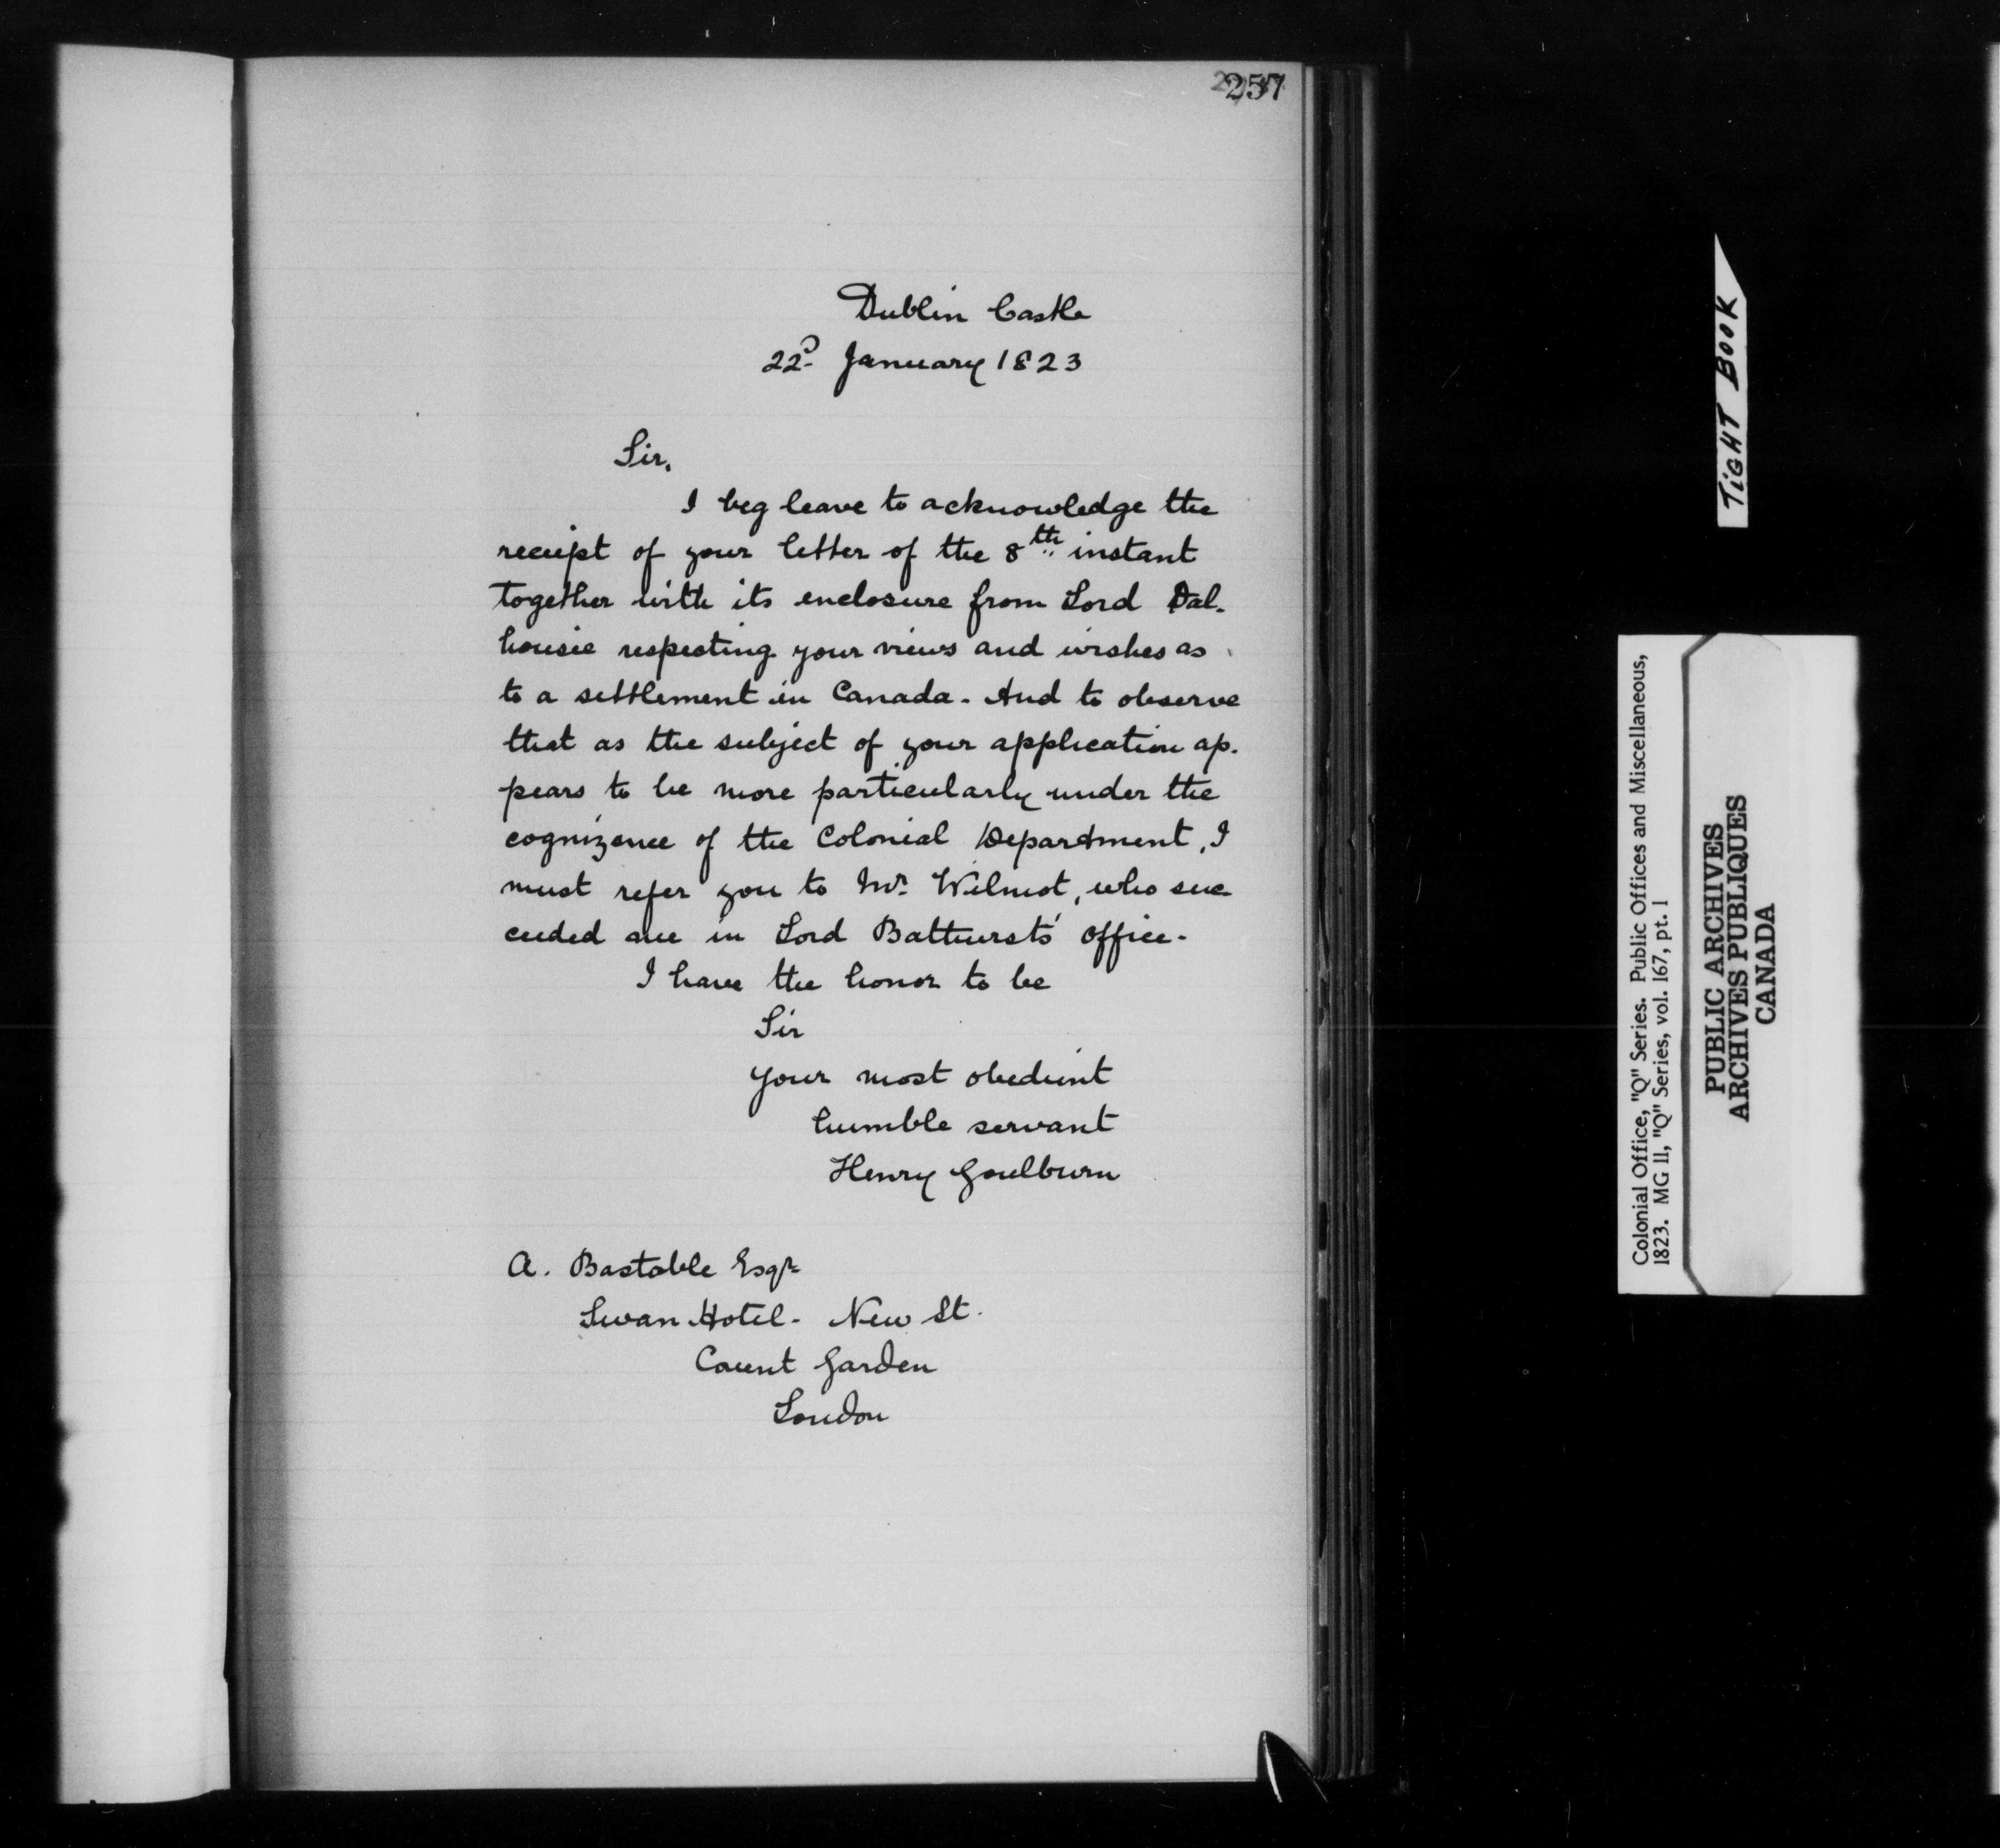 257
Dublin Castle
22d January 1823
Sir,
I beg leave to acknowledge the
receipt of your letter of the 8th instant
together with its enclosure from Lord Dal-
housie respecting your views and wishes as
to a settlement in Canada. And to observe
that as the subject of your application ap-
pears to be more particularly under the
cognizence of the Colonial Department, I
must refer you to Mr. Wilmot, who suc-
ceeded me in Lord Bathursts' office.
I have the honor to be
Sir
Your most obedient
humble servant
Henry Goulburn
A. Bastable Esqr
Swan Hotel. New St.
Covent Garden
London
TIGHT BOOK
Colonial Office, "Q" Series. Public Offices and Miscellaneous,
1823. MG 11, "Q" Series, vol. 167, pt. 1
PUBLIC ARCHIVES
ARCHIVES PUBLIQUES
CANADA